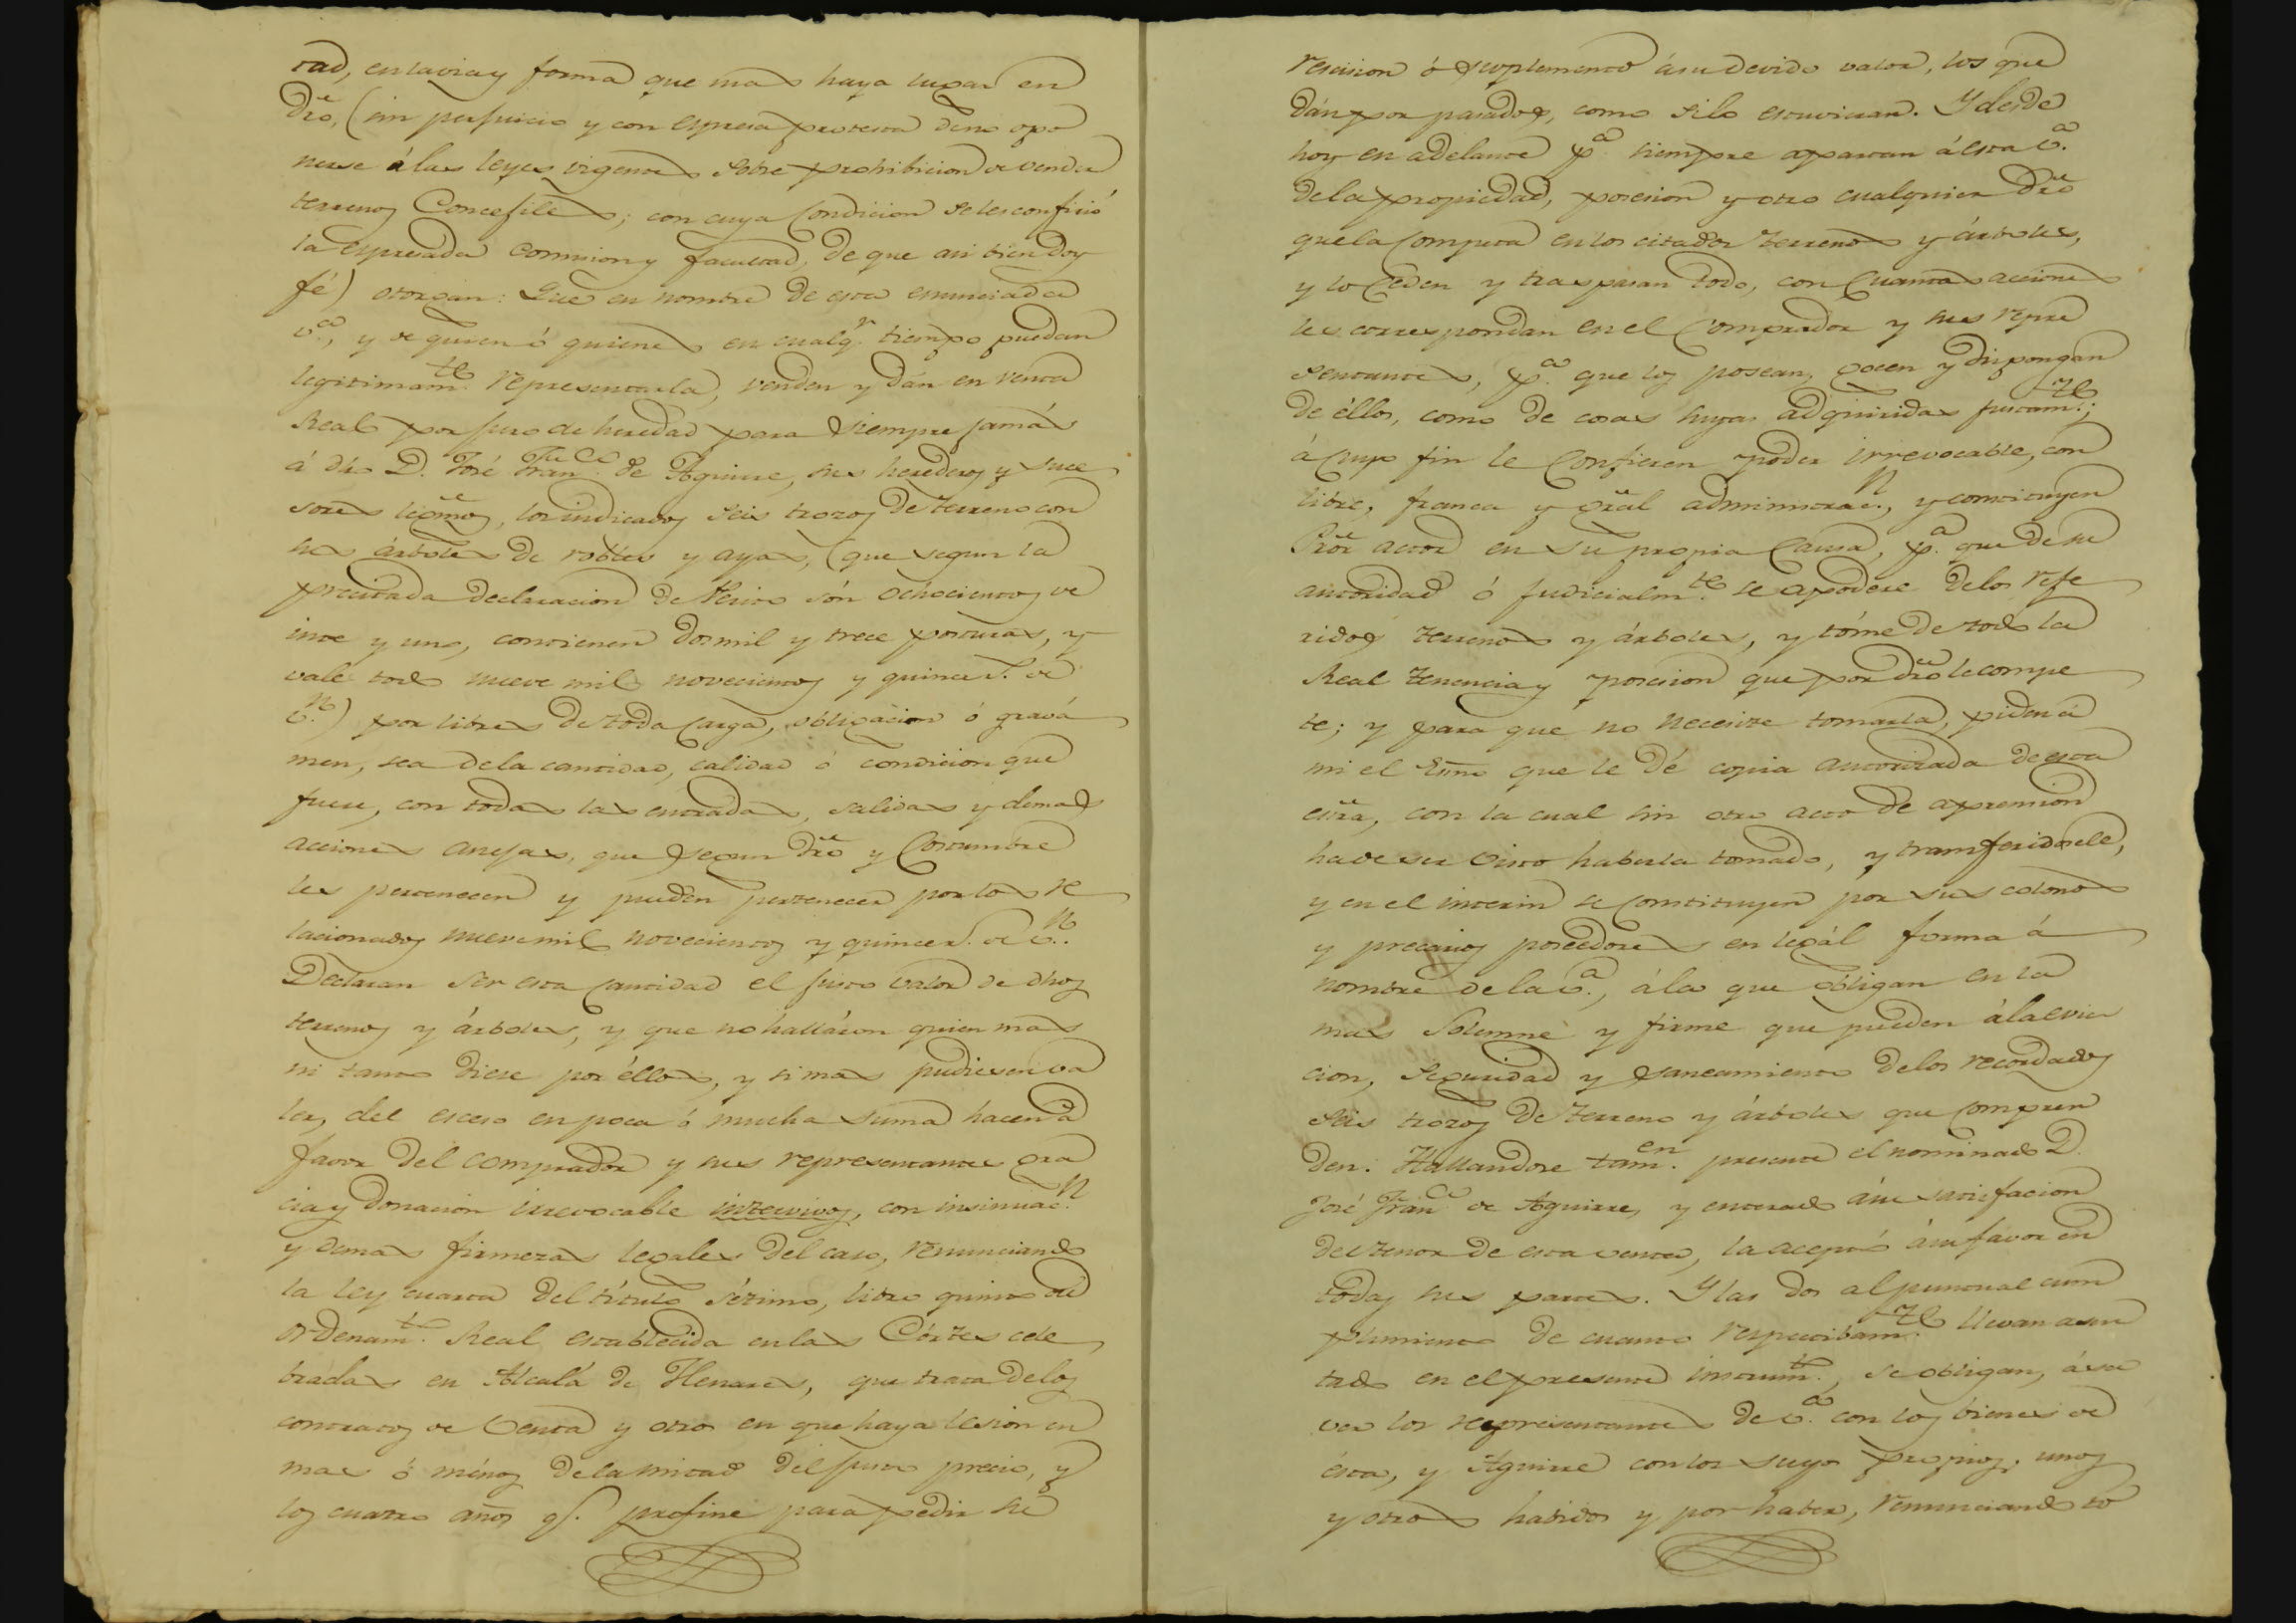 tad, en la via y forma que mas haya lugar en
dro, (sin perjuicio y con espresa protesta de no opo
nerse á las leyes vigentes sobre prohibicion de vender
terrenos Concejiles; con cuya Condicion se les confirió
la espresada comision y facultad, de que asi bien doy
fé) otorgan: Que en nombre de esta enunciada
v.ª, y de quien ó quienes en cualq.r tiempo puedan
legitimam.te representarla, venden y dán en venta
Real por juro de heredad para siempre jamás
á dho D. José Fran.co de Aguirre, sus herederos y suce
sores legmos, los indicados seis trozos de terreno con
sus árboles de robles y ayas, (que segun la
precitada declaracion de Perito són ochocientos ve
inte y uno, contienen dos mil y trece posturas, y
vale todo nueve mil novecientos y quince r.s de
v.n) por libres de toda Carga, obligacion ó gravá
men, sea de la cantidad, calidad ó condicion que
fuere, con todas las entradas, salidas y demas
acciones anejas, que segun dro y Costumbre
les pertenecen y pueden pertenecer por los re
lacionados nueve mil novecientos y quince r.s de v.n.
Declaran ser esta Cantidad el justo valor de dhos
terrenos y árboles, y que no halláron quien mas
ni tanto diese por éllos, y si mas pudiesen va
ler, del esceso en poca ó mucha suma hacen á
favor del comprador y sus representantes gra
cia y donacion irrevocable intervivos, con insinuac.n
y demas firmezas legales del caso, renunciando
la ley cuarta del título sétimo, libro quinto del
ordenam.to Real establecida en las Córtes cele
bradas en Alcalá de Henares, que trata de los
contratos de Venta y otros en que haya lesion en
mas ó ménos de la mitad del justo precio, y
los cuatro años q.e prefine para pedir su
rescision ó suplemento á su devido valor, los que
dán por pasados, como si lo estuvieran. Y desde
hoy en adelante p.ª siempre apartan á esta v.ª
de la propiedad, posesion y otro cualquier dro
que la Competa en los citados terrenos y árboles,
y lo Ceden y traspasan todo, con Cuantas acciones
les correspondan en el Comprador y sus repre
sentantes, p.ª que los posean, gocen y dispongan
de éllos, como de cosas suyas adquiridas justam.te;
á Cuyo fin le Confieren poder irrevocable, con
libre, franca y gral administrac.n, y constituyen
Pror actor en su propia Causa, p.ª que de su
autoridad ó judicialm.te se apodere de los refe
ridos terrenos y árboles, y tóme de todo la
Real tenencia y posesion que por dro le compe
te; y para que no necesite tomarla, piden á
mi el Esno que le dé copia autorizada de esta
esrra, con la cual sin otro acto de aprension
ha de ser visto haberla tomado, y transferidosele,
y en el interin se Constituyen por sus colonos
y precarios poseedores en legál forma á
nombre de la v.ª, á la que obligan en la
mas Solemne y firme que pueden á la evic
cion, seguridad y saneamiento de los recordados
seis trozos de terreno y árboles que compren
den. Hallandose tam.en presente el nominado D.
José Fran.co de Aguirre, y enterado á su satisfacion
del tenor de esta venta, la aceptó á su favor en
todas sus partes. Y las dos al puntual cum
plimiento de cuanto respectibam.te llevan asen
tado en el presente instrum.to, se obligan, á sa
ver los representantes de v.ª con los bienes de
ésta, y Aguirre con los suyos propios, unos
y otros habidos y por haber, renunciando to